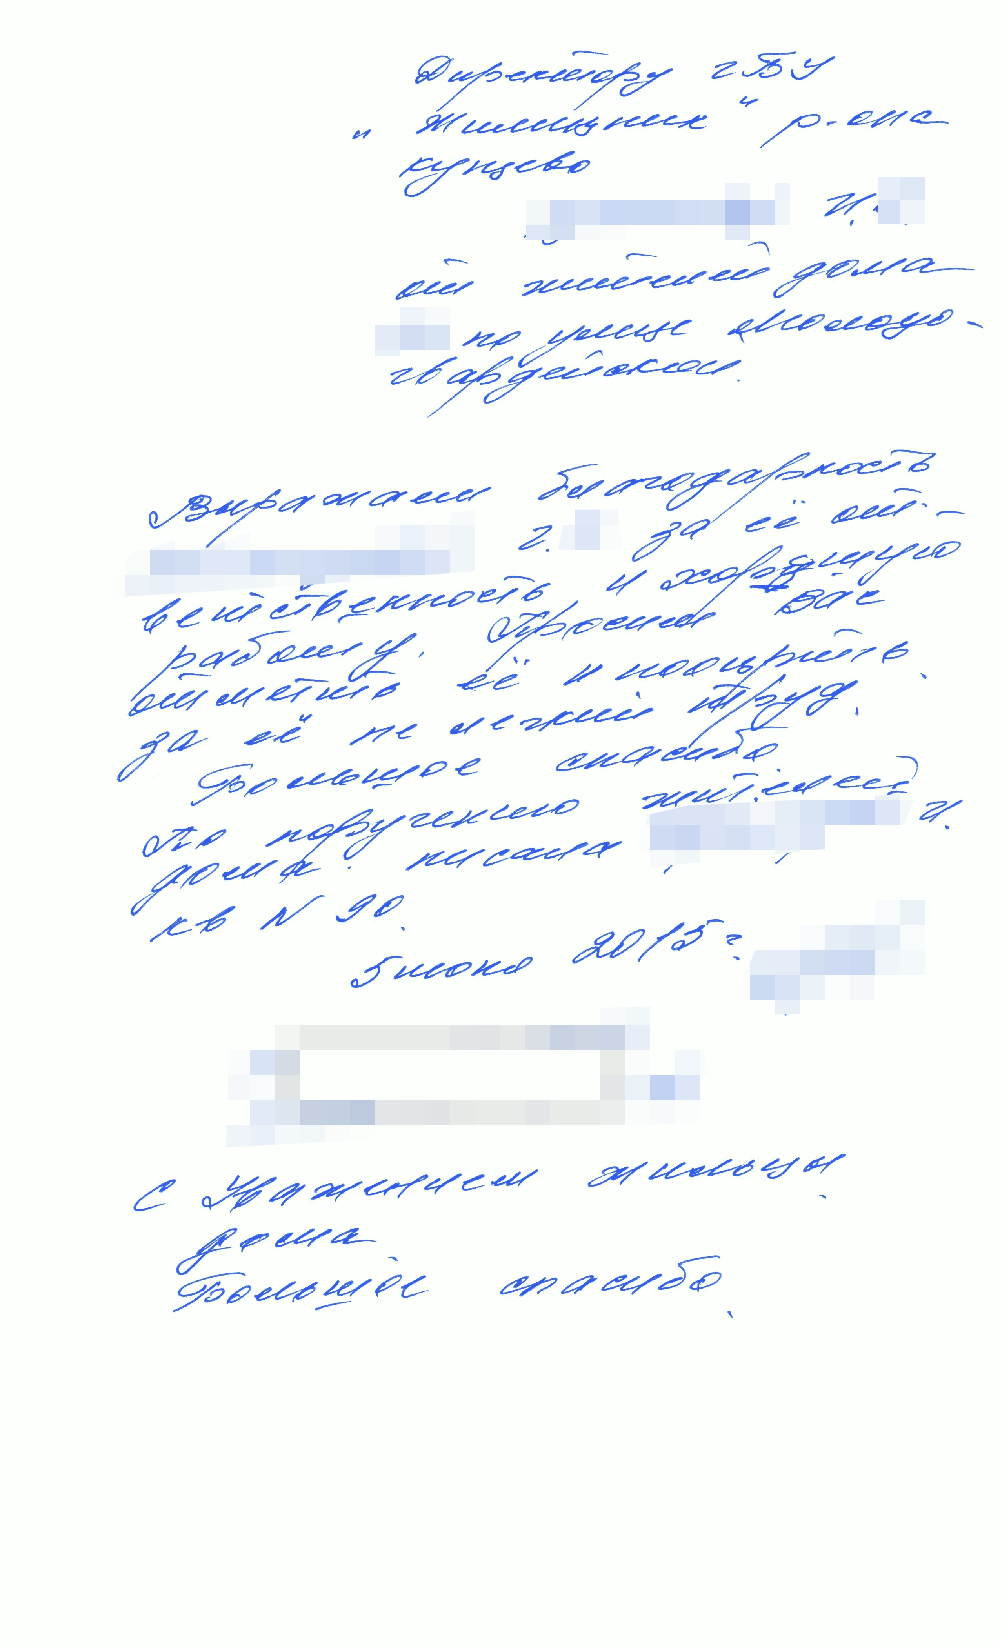 Директору ГБУ
"Жилищник" р-она
Кунцево
И.
от жителей дома
по улице Молодо-
гвардейской.
Выражаем благодарность
Г. за её от-
ветственность и хорошую
работу. Просим Вас
отметить её и поощрить
за её не легкий труд.
Большое спасибо
По поручению жителей
дома писала И.
кв N 90.
5 июня 2015 г.
С Уважением жильцы
дома
Большое спасибо